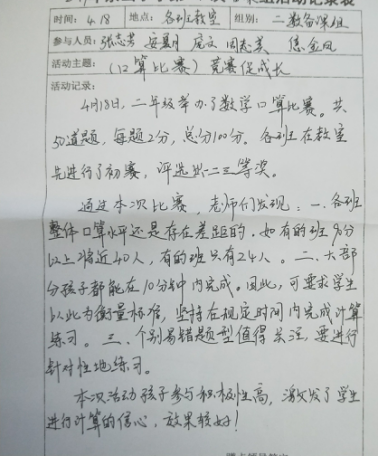 活动记录表
时间: 4.18 地点: 各班教室 组别: 二数备课组
参与人员: 张志芳 安夏月 庞文 周志芸 焦金凤
活动主题: (口算比赛) 竞赛促成长
活动记录:
4月18日,二年级举办了数学口算比赛。共
50道题,每题2分,总分100分。各班在教室
先进行了初赛,评选出一二三等奖。
通过本次比赛,老师们发现:一.各班
整体口算水平还是存在差距的.如有的班96分
以上将近40人,有的班只有24人。二.大部
分孩子都能在10分钟内完成。因此,可要求学生
以此为衡量标准,坚持在规定时间内完成计算
练习。三.个别易错题型值得关注,要进行
针对性地练习。
本次活动孩子参与积极性高,激发了学生
进行计算的信心,效果较好!